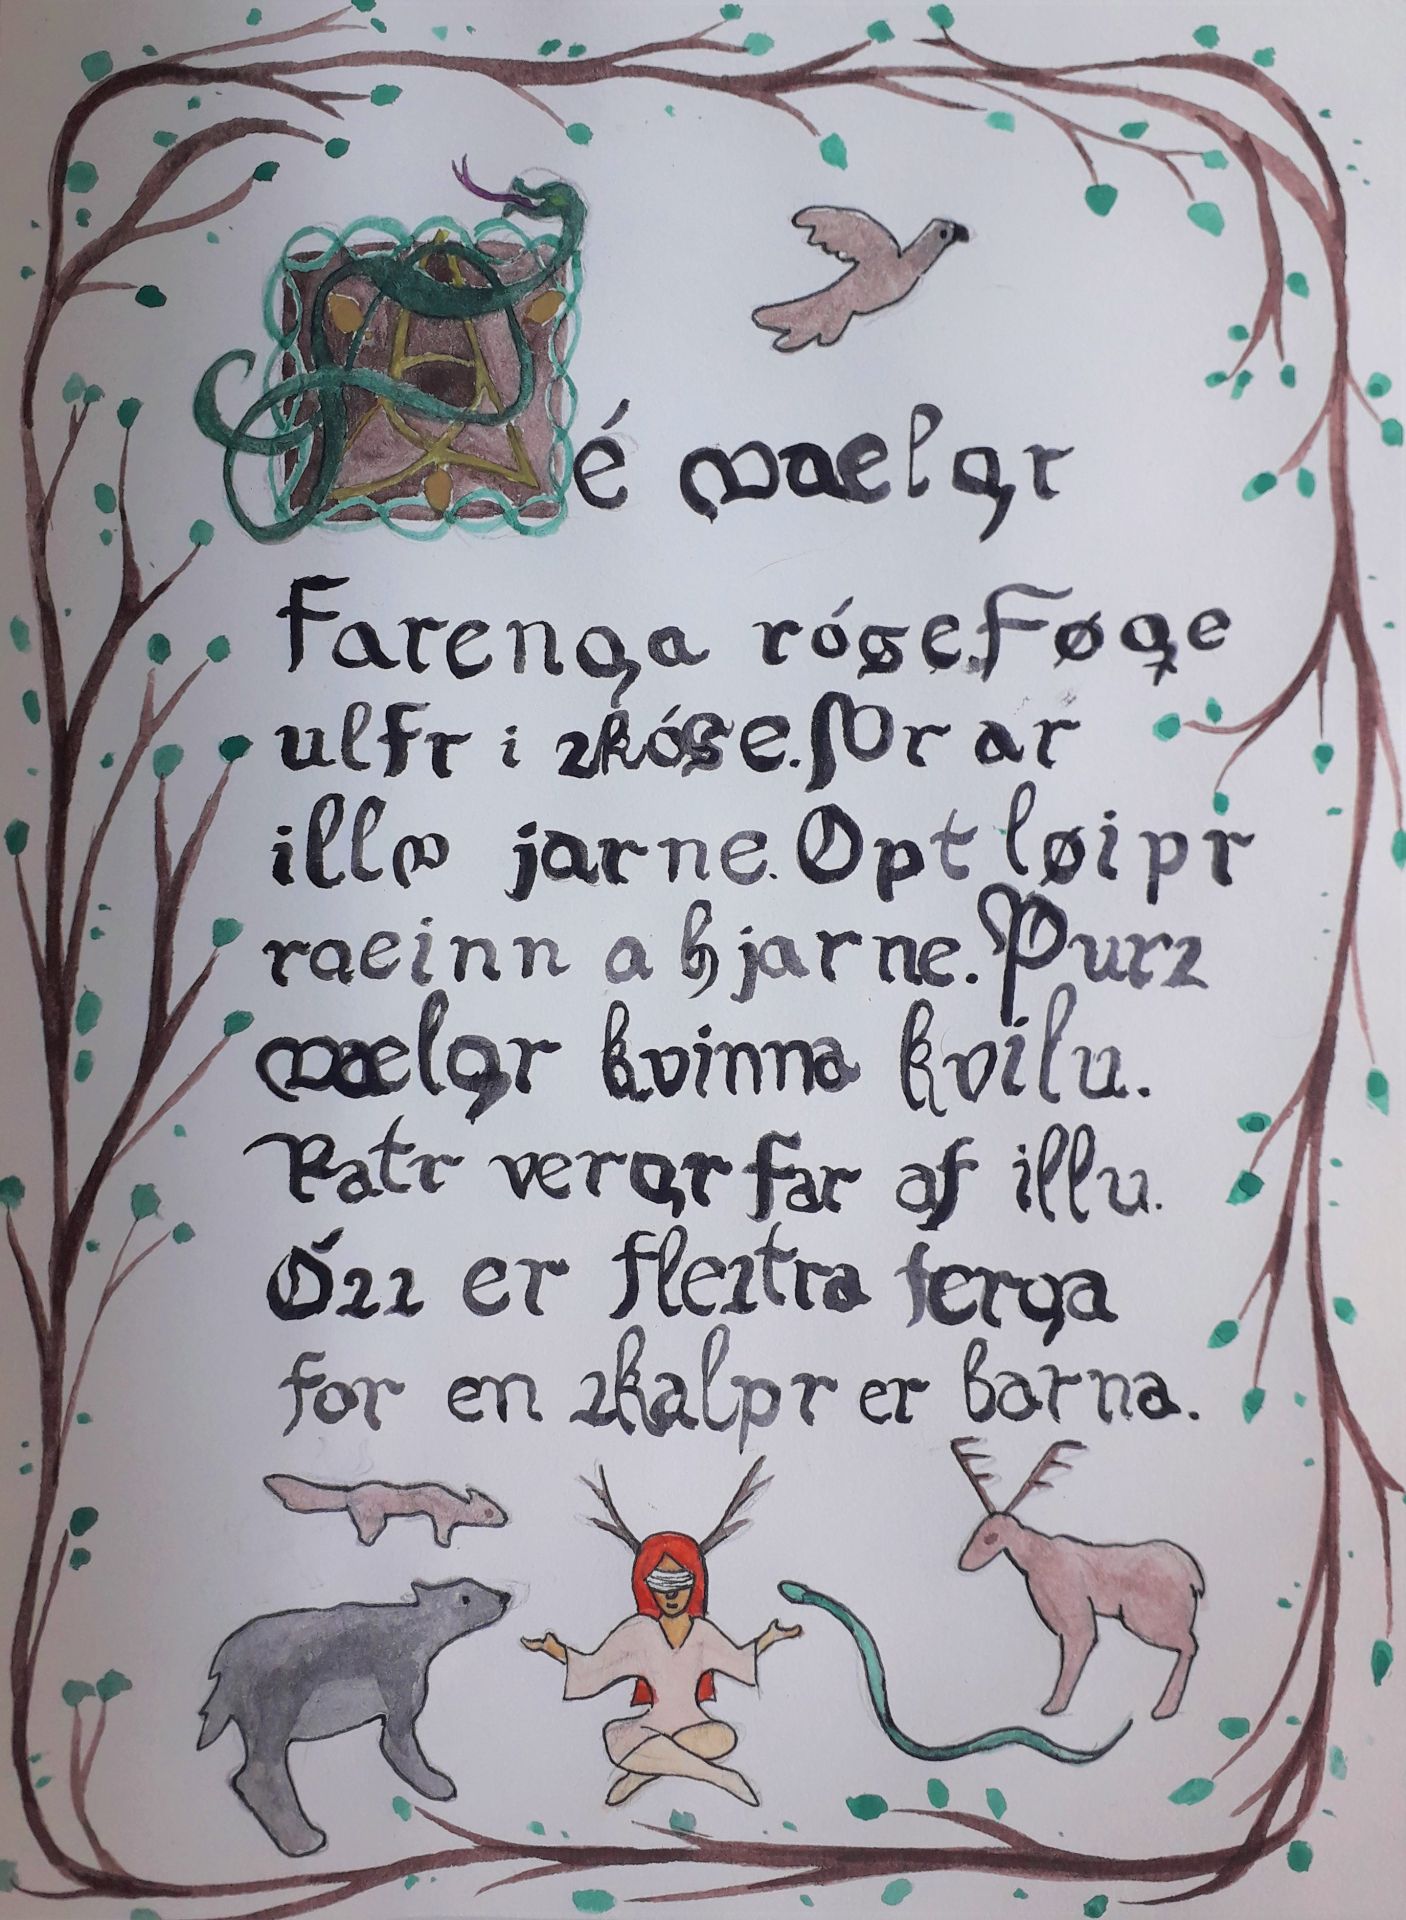 Aé vaelgr
Farenga róge. Føge
ulfr i skóge. Vr ar
illv jarne. Opt løipr
raeinn a hjarne. Þurs
vælgr kvinna kvilu.
Katr vergr far af illu.
Óss er flestra ferga
for en skalpr er barna.